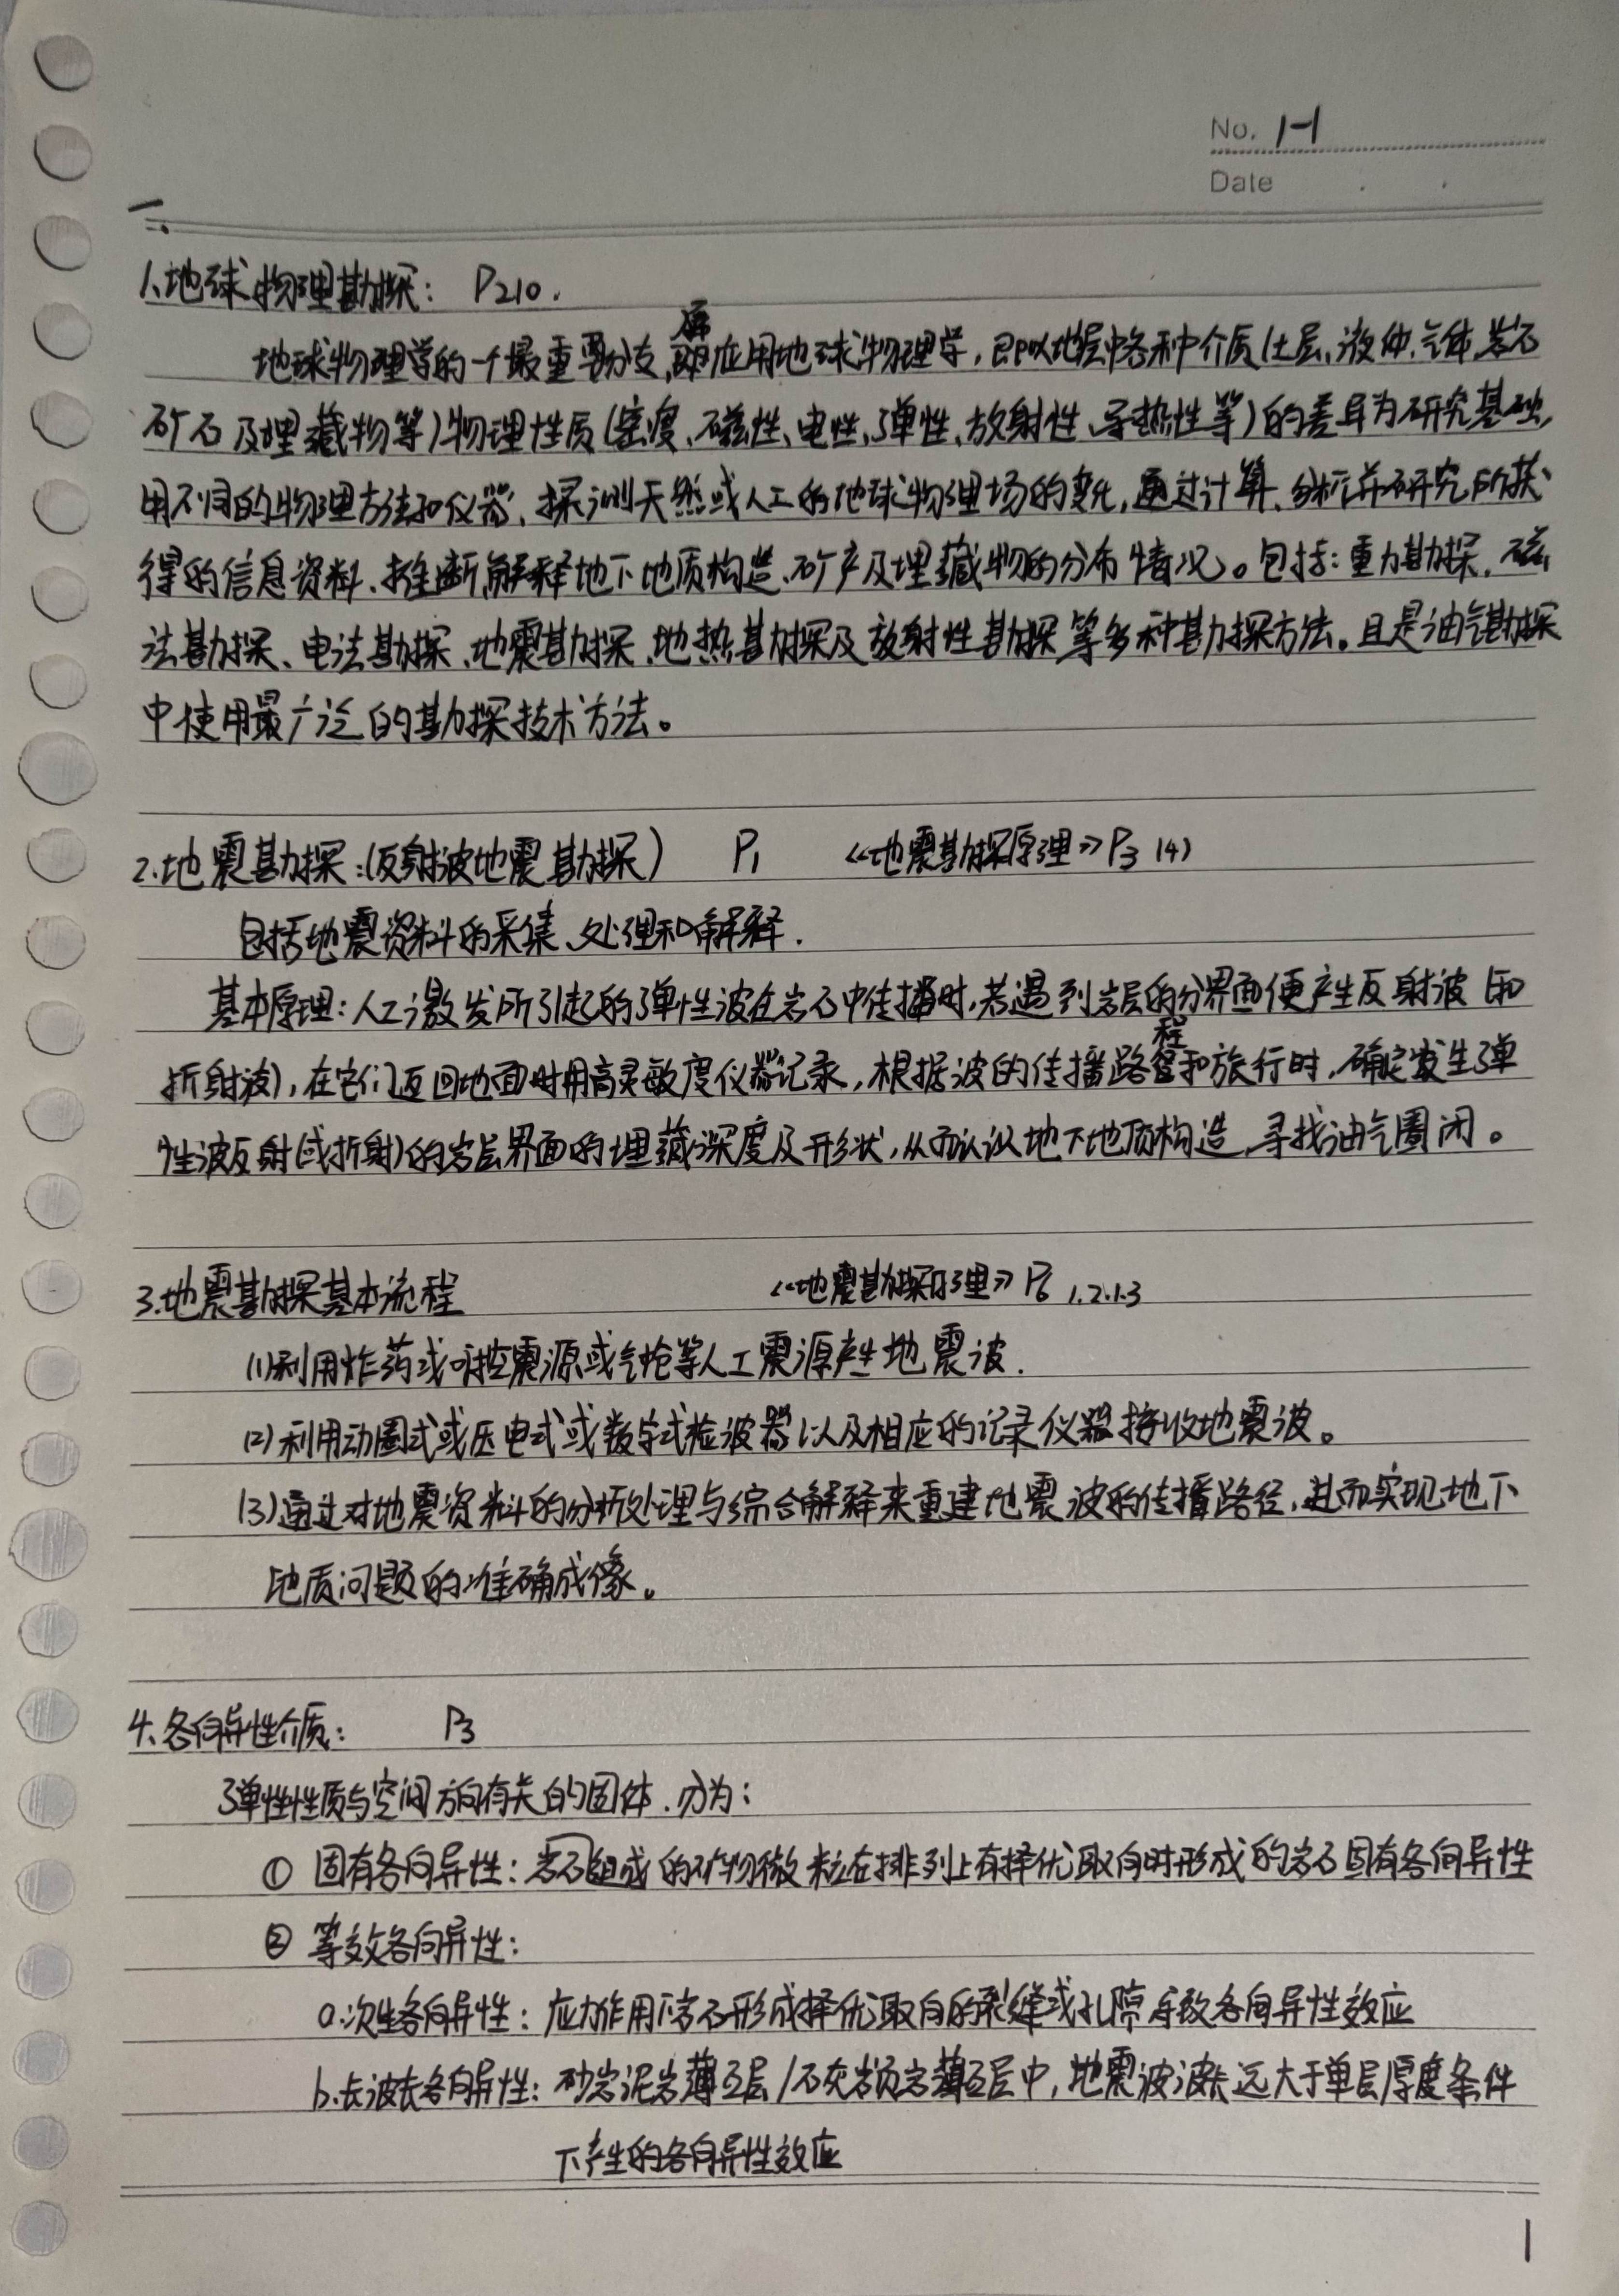 No. 1-1
Date
一.
1.地球物理勘探： P210.
地球物理学的一个最重要分支,属应用地球物理学,即以地层中各种介质(土层、液体、气体、岩石
矿石及埋藏物等)物理性质(密度、磁性、电性、弹性、放射性、导热性等)的差异为研究基础,
用不同的物理方法和仪器,探测天然或人工的地球物理场的变化,通过计算、分析并研究所获
得的信息资料、推断解释地下地质构造、矿产及埋藏物的分布情况。包括:重力勘探、磁
法勘探、电法勘探、地震勘探、地热勘探及放射性勘探等多种勘探方法。且是油气勘探
中使用最广泛的勘探技术方法。
2.地震勘探:(反射波地震勘探) P1 《地震勘探原理》P3 (4)
包括地震资料的采集、处理和解释.
基本原理:人工激发所引起的弹性波在岩石中传播时,若遇到岩层的分界面便产生反射波(和
折射波),在它们返回地面时用高灵敏度仪器记录,根据波的传播路程和旅行时,确定发生弹
性波反射(或折射)的岩层界面的埋藏深度及形状,从而认识地下地质构造,寻找油气圈闭。
3.地震勘探基本流程 《地震勘探原理》P6 1.2.1.3
(1)利用炸药或可控震源或气枪等人工震源产生地震波.
(2)利用动圈式或压电式或数字式检波器以及相应的记录仪器接收地震波。
(3)通过对地震资料的分析处理与综合解释来重建地震波的传播路径,进而实现地下
地质问题的准确成像。
4.各向异性介质: P3
弹性性质与空间方向有关的固体.分为:
① 固有各向异性:岩石组成的矿物微粒在排列上有择优取向时形成的岩石固有各向异性
② 等效各向异性:
a.次生各向异性: 应力作用下岩石形成择优取向的裂缝或孔隙导致各向异性效应
b.长波长各向异性: 砂岩泥岩薄互层/石灰岩页岩薄互层中,地震波波长远大于单层厚度条件
下产生的各向异性效应
1